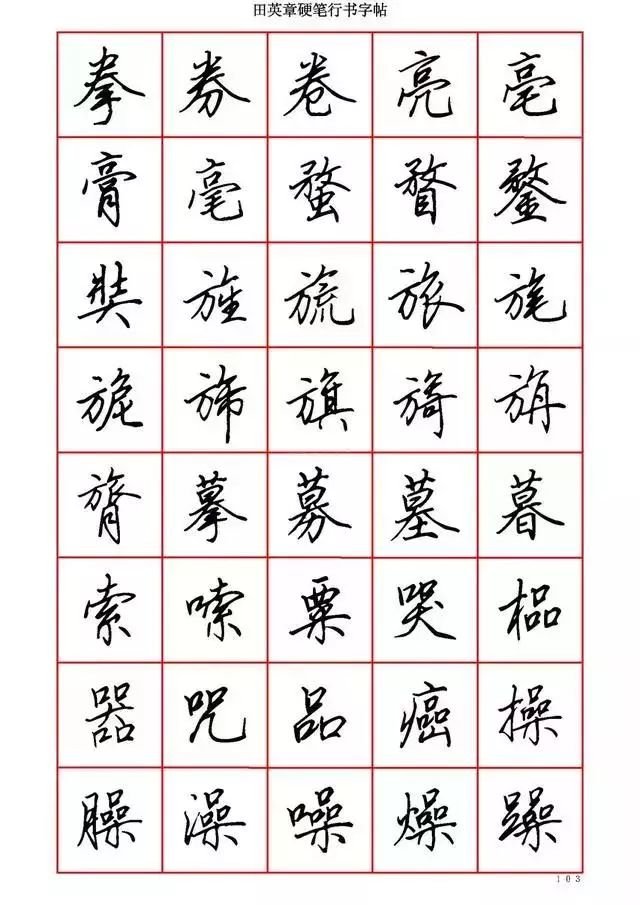 田英章硬笔行书字帖
拳 券 卷 亮 亳
膏 毫 蝥 瞀 鍪
奘 旌 旒 旅 旄
旎 旆 旗 旖 旃
膂 摹 募 墓 暮
索 嗦 粟 哭 榀
器 咒 品 癌 操
臊 澡 噪 燥 躁
103